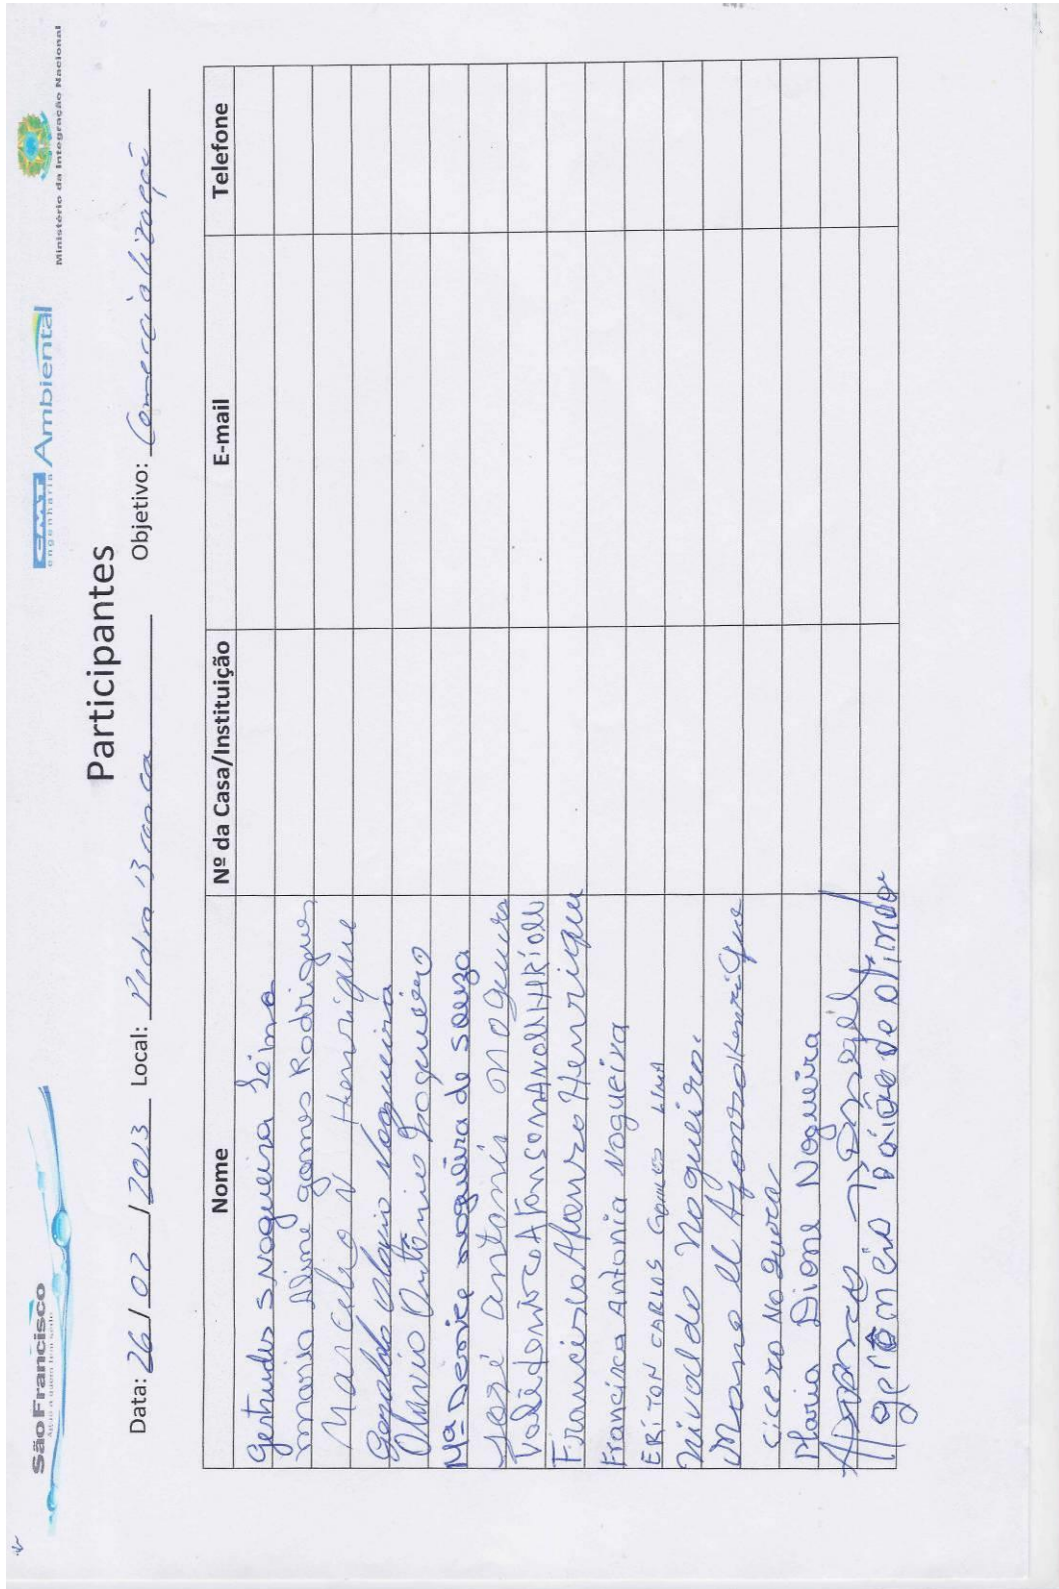 São Francisco
Água a quem tem sede
CMT Ambiental
engenharia
Ministério da Integração Nacional
Participantes
Data: 26/02/2013 Local: Pedra Branca Objetivo: Comercializaçã
Nome Nº da Casa/Instituição E-mail Telefone
Gertrudes Nogueira Leima
Maria Aline gomes Rodrigues
Marcelio N Henrique
Geraldo Nogueira
Olavio Antônio Nogueira
Mª Denice nogueira de souza
José Antonio Nogueira
Francisco Afonso Henrique
Francisca Antonia Nogueira
ERITON CARLOS Gomes LIMA
Nivaldo Nogueira.
Manoel Afonso Henrique
Cicero Nogueira
Maria Dione Nogueira